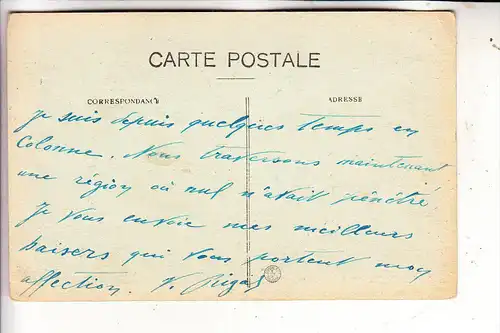 CARTE POSTALE
CORRESPONDANCE
ADRESSE
Je suis depuis quelques temps en
Colonne. Nous traversons maintenant
une région où nul n'avait pénétré.
Je vous envoie mes meilleurs
baisers qui vous portent mon
affection. V. Rigal